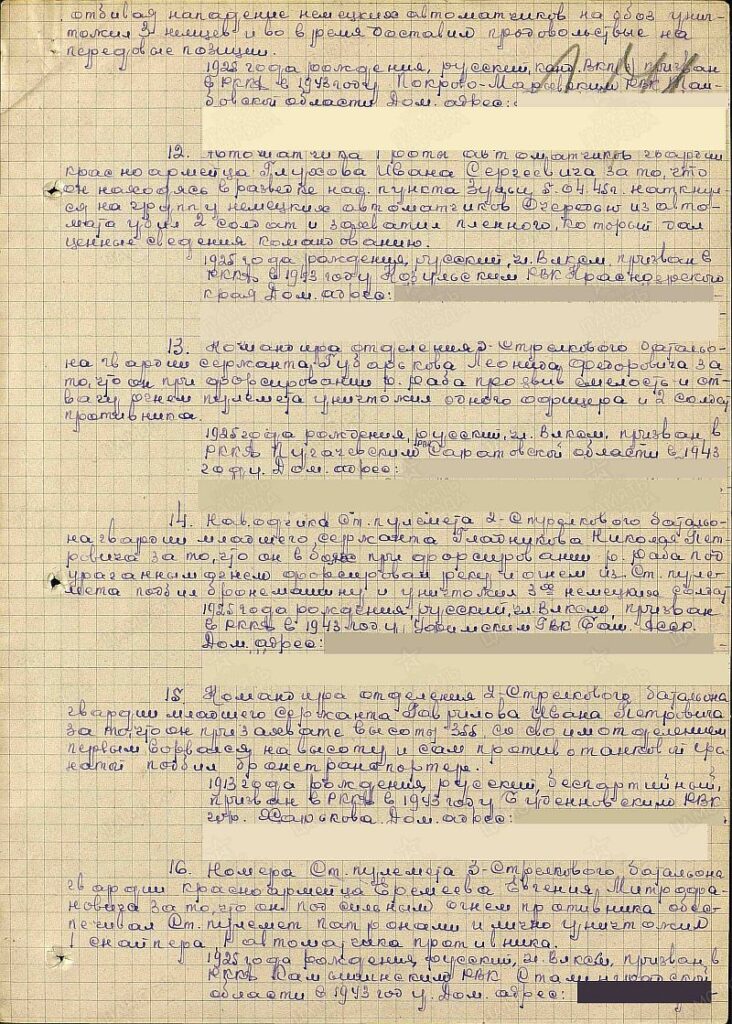 отбивая нападение немецких автоматчиков на обоз унич-
тожил 3 немцев и во время доставил продовольствие на
передовые позиции.
1925 года рождения, русский, канд. ВКП(б) призван
в РККА в 1943 году Покрово-Марфинским РВК Там-
бовской области Дом. адрес:
12. Автоматчика 1 роты автоматчиков гвардии
красноармейца Глухова Ивана Сергеевича за то, что
он находясь в разведке нас. пункта 5.04.45г. наткнул-
ся на группу немецких автоматчиков Очередью из авто-
мата убил 2 солдат и захватил пленного, который дал
ценные сведения командованию.
1925 года рождения, русский, чл. ВЛКСМ, призван в
РККА в 1943 году Козульским РВК Красноярского
края Дом. адрес:
13. Командира отделения 2-Стрелкового баталь-
на гвардии сержанта Губарькова Леонида Федоровича за
то, что он при форсировании р. Раба проявив смелость и от-
вагу огнем пулемета уничтожил одного офицера и 2 солдат
противника.
1925 года рождения, русский, чл. ВЛКСМ, призван в
РККА Пугачевским РВК Саратовской области в 1943
году. Дом. адрес:
14. Наводчика Ст. пулемета 2-Стрелкового баталь-
на гвардии младшего сержанта Гладникова Николая Пет-
ровича за то, что он в боях при форсировании р. Раба под
ураганным огнем форсировал реку и огнем из Ст. пуле-
мета подбил бронемашину и уничтожил 3ое немецких солдат
1925 года рождения, русский, чл. ВЛКСМ, призван
в РККА в 1943 году Уфимским ГВК Баш. АССР.
Дом. адрес:
15. Командира отделения 2-Стрелкового батальона
гвардии младшего сержанта Гаврилова Ивана Петровича
за то, что он при захвате высоты 355, со своим отделением
первым ворвался на высоту и сам противотанковой гра-
натой подбил бронетранспортер.
1913 года рождения, русский, беспартийный,
призван в РККА в 1943 году Буденновским РВК
гор. Харькова. Дом. адрес:
16. Номера Ст. пулемета 3-Стрелкового батальона
гвардии красноармейца Еремеева Евгения Митрофа-
новича за то, что он под сильным огнем противника обес-
печивал Ст. пулемет патронами и лично уничтожил
1 снайпера, 1 автоматчика противника.
1925 года рождения, русский, чл. ВЛКСМ, призван в
РККА Камышинским РВК Сталинградской
области в 1943 году. Дом. адрес: